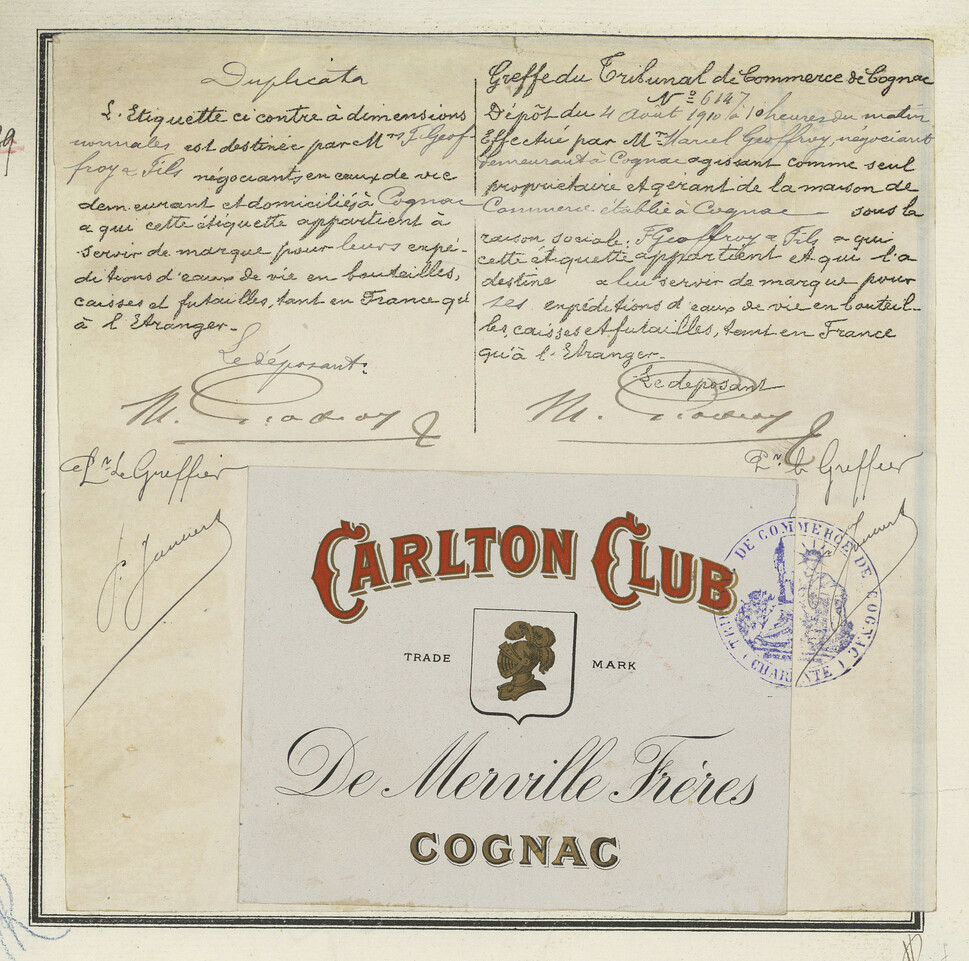 Duplicata
L'Etiquette ci contre à dimensions
normales est destinée par Mrs F. Geof-
froy & Fils négociants en eaux de vie
demeurant et domiciliés à Cognac
a qui cette étiquette appartient à
servir de marque pour leurs expé-
ditions d'eaux de vie en bouteilles,
caisses et futailles, tant en France qu'
à l'Etranger.
Le déposant:
M. Geoffroy
Pr le Greffier
Greffe du Tribunal de Commerce de Cognac
No 6147
Dépôt du 4 Août 1910 à 10 heures du matin
Effectué par Mr Marcel Geoffroy, négociant
demeurant à Cognac agissant comme seul
propriétaire et gérant de la maison de
Commerce établie à Cognac sous la
raison sociale: F. Geoffroy & Fils a qui
cette étiquette appartient et qui l'a
destine a lui servir de marque pour
ses expéditions d'eaux de vie en bouteil-
les, caisses et futailles, tant en France
qu'à l'Etranger.
Le deposant
M. Geoffroy
Pr le Greffier
CARLTON CLUB
TRADE MARK
De Merville Frères
COGNAC
DE COMMERCE DE COGNAC
(CHARENTE)